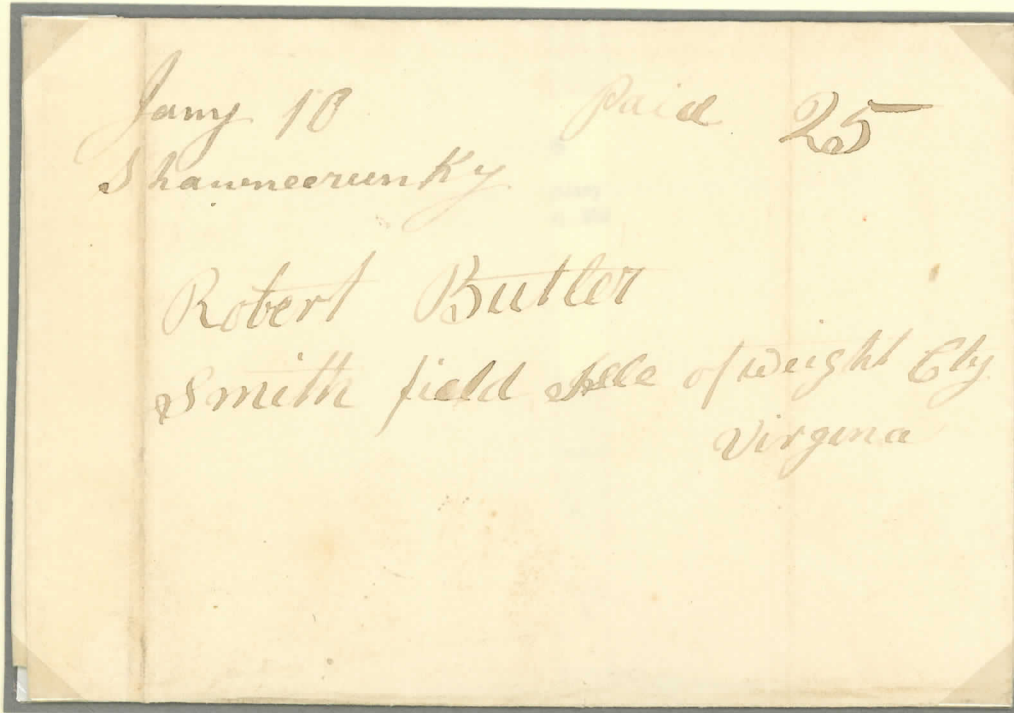 Jany 10 Paid 25
Shawneerun Ky
Robert Butler
Smith field Isle of weight Cty
Virgina